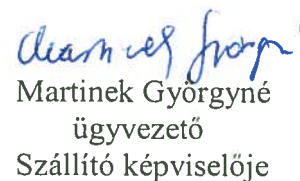 Martinek Györgyné
ügyvezető
Szállító képviselője